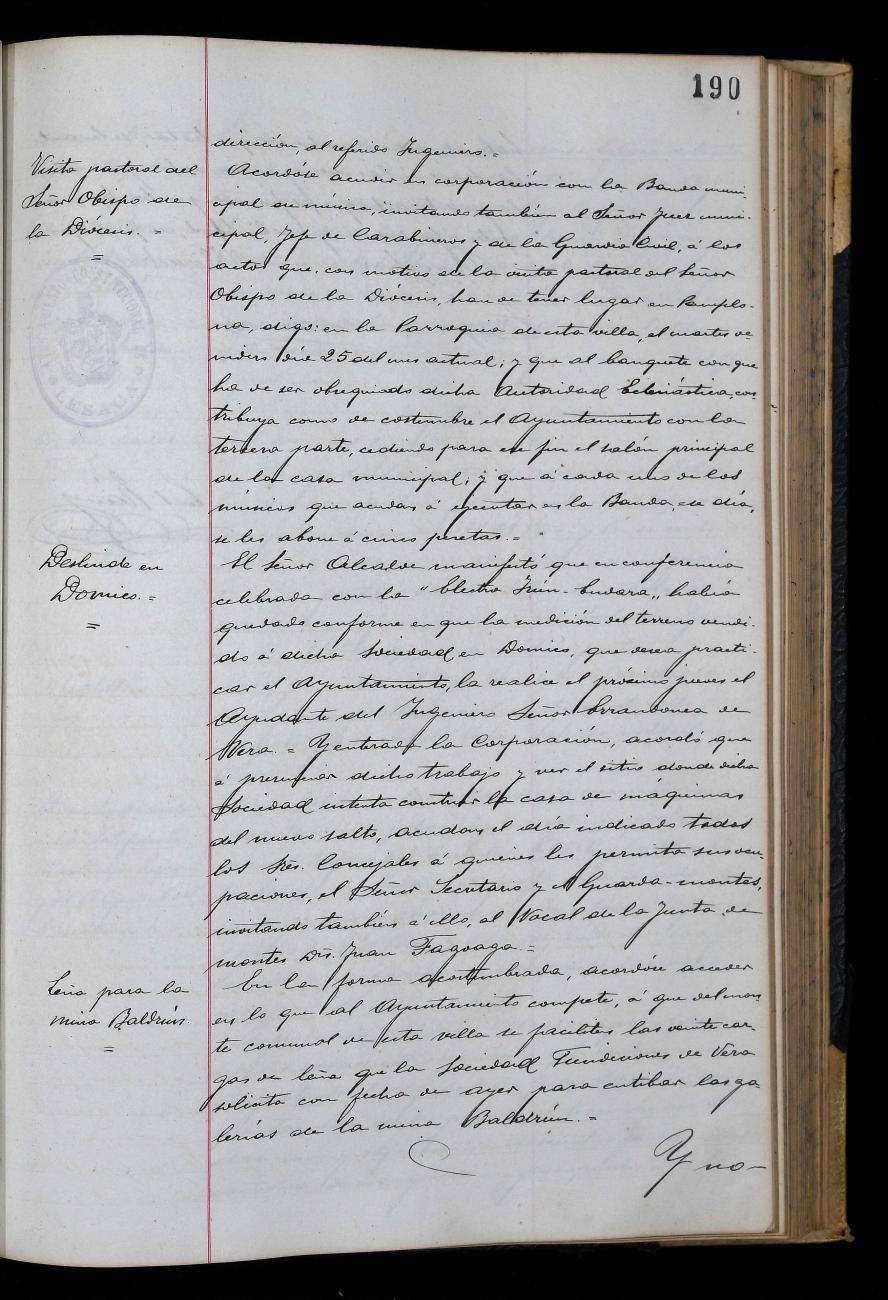 190
dirección, al referido Ingeniero. =
Visita pastoral del
Señor Obispo de
la Diócesis. =
=
Acordóse acudir en corporación con la Banda muni-
cipal de música, invitando también al Señor Juez muni-
cipal, Jefe de Carabineros y de la Guardia Civil, á los
actos que, con motivo de la visita pastoral del Señor
Obispo de la Diócesis, han de tener lugar en Pamplo-
na, digo: en la Parroquia de esta villa, el martes ve-
nidero día 25 del mes actual; y que al banquete con que
ha de ser obsequiado dicha Autoridad Eclesiástica, con-
tribuya como de costumbre el Ayuntamiento con la
tercera parte, cediendo para ese fin el salón principal
de la casa municipal; y que á cada uno de los
músicos que acudan á ejecutar en la Banda, ese día,
se les abone á cinco pesetas. =
AYUNTAMIENTO CONSTITUCIONAL DE
LESACA
Deslinde en
Domico. =
=
El Señor Alcalde manifestó que en conferencia
celebrada con la "Electra Irún-Endara„ había
quedado conforme en que la medición del terreno vendi-
do á dicha Sociedad, en Domico, que desea practi-
car el Ayuntamiento, la realice el próximo jueves el
Ayudante del Ingeniero Señor Errandonea de
Vera. = Y enterada la Corporación, acordó que
á presenciar dicho trabajo y ver el sitio donde dicha
Sociedad intenta construir la casa de máquinas
del nuevo salto, acudan el día indicado todos
los Sres. Concejales á quienes les permita sus ocu-
paciones, el Señor Secretario y el Guarda-montes,
invitando también á ello, al Vocal de la Junta de
montes Dn. Juan Fagoaga. =
Leña para la
mina Baldrún.
=
En la forma acostumbrada, acordóse acceder
en lo que al Ayuntamiento compete, á que del mon-
te comunal de esta villa se faciliten las veinte car-
gas de leña que la Sociedad Fundiciones de Vera
solicita con fecha de ayer para entibar las ga-
lerías de la mina Baldrún. =
Y no-